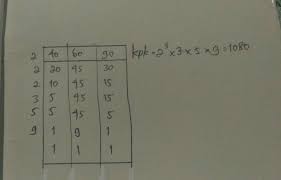 2 40 60 90 kpk = 2³ × 3 × 5 × 9 = 1080
2 20 45 30
2 10 45 15
3 5 45 15
5 5 45 5
9 1 9 1
1 1 1